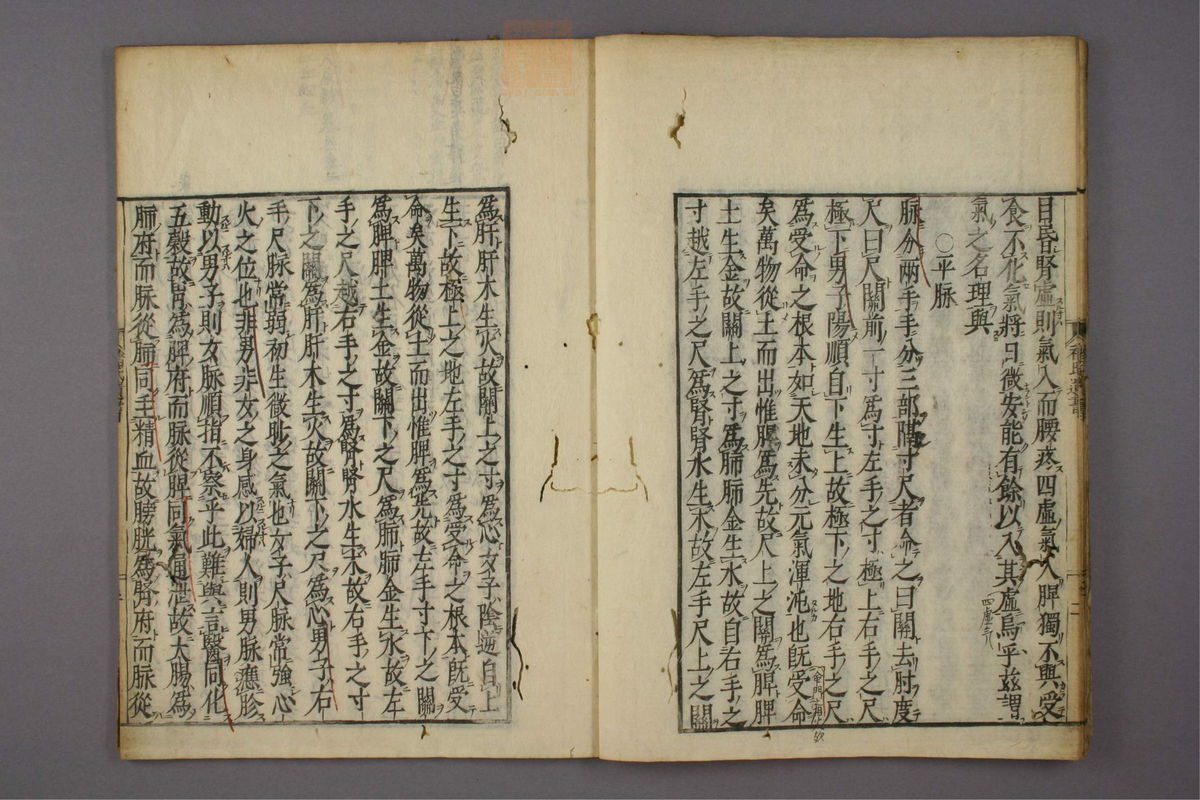 目昏腎虛則氣入而腰疼四虛氣入脾獨不與受
食不化氣將日微安能有餘以入其虛烏乎茲謂
氣之名理與
○平脉
脉分兩手手分三部隔寸尺者命之曰關去肘度
尺曰尺關前一寸爲寸左手之寸極上右手之尺
極下男子陽順自下生上故極下之地右手之尺
爲受命之根本如天地未分元氣渾沌也旣受命
矣萬物從土而出惟脾爲先故尺上之關爲脾脾
土生金故關上之寸爲肺肺金生水故自右手之
寸越左手之尺爲腎腎水生木故左手尺上之關
爲肝肝木生火故關上之寸爲心女子陰逆自上
生下故極上之地左手之寸爲受命之根本旣受
命矣萬物從土而出惟脾爲先故左手寸下之關
爲脾脾土生金故關下之尺爲肺肺金生水故左
手之尺越右手之寸爲腎腎水生木故右手之寸
下之關爲肝肝木生火故關下之尺爲心男子右
手尺脉常弱初生微眇之氣也女子尺脉常強心
火之位也非男非女之身感以婦人則男脉應胗
動以男子則女脉順指不察乎此難與言醫同化
五穀故胃爲脾府而脉從脾同氣通泄故大腸爲
肺府而脉從肺同主精血故膀胱爲腎府而脉從
褚氏遺書